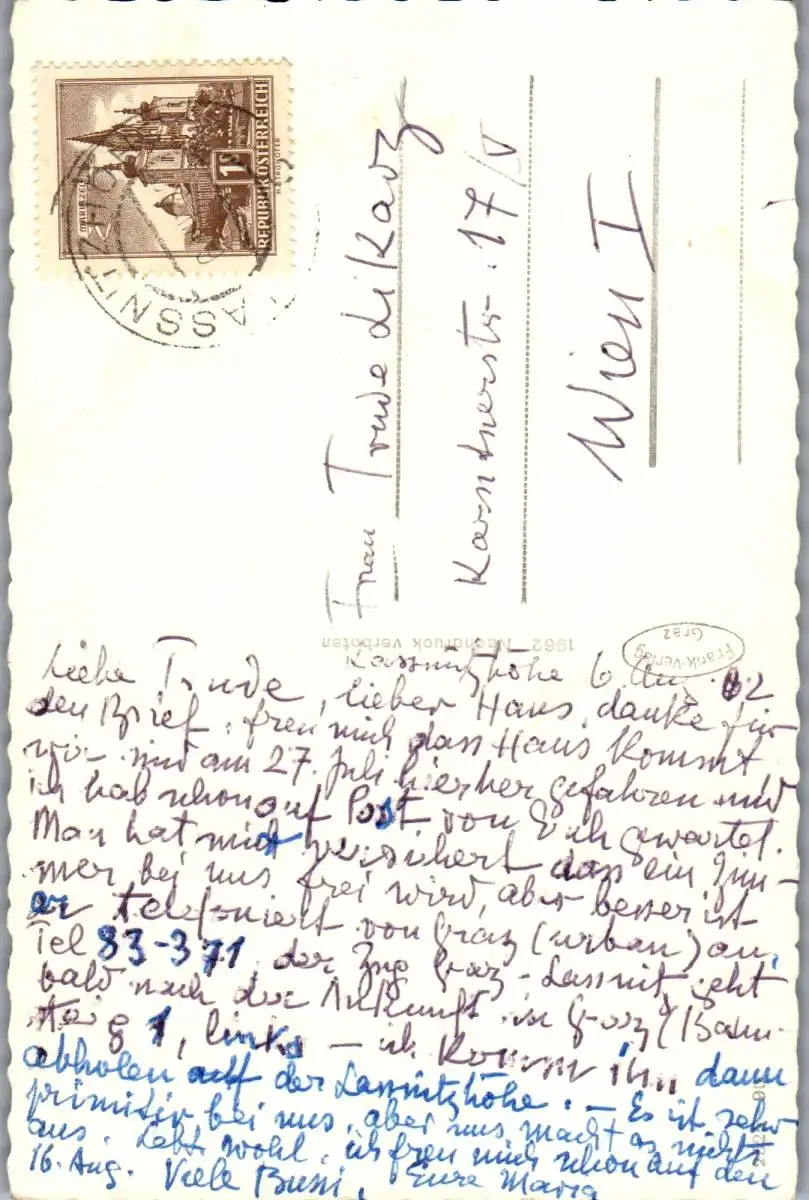 MARIAZELL
1S
REPUBLIK ÖSTERREICH
LASSNITZHÖHE
Frau Trude Likarz
Karntnerstr. 17/V
Wien I
1962 Nachdruck verboten
Frank-Verlag
Graz
Lassnitzhöhe 6 Aug. 62
Liebe Trude, lieber Haus, danke für
den Brief, freu mich dass Haus kommt,
wir sind am 27. Juli hierher gefahren und
ich hab schon auf Post von Euch gewartet.
Man hat mich versichert dass ein Zim-
mer bei uns frei wird, aber besser ist
er telefoniert von Graz (urban) an,
Tel 83-371, der Zug Graz-Lassnitz geht
bald nach der Ankunft in Graz (Bahn-
steig 1, links - ich komm ihn dann
abholen auf der Lassnitzhöhe. - Es ist sehr
primitiv bei uns, aber uns macht es nichts
aus. Lebt wohl, ich freu mich schon auf den
16. Aug. Viele Bussi, Eure Maria